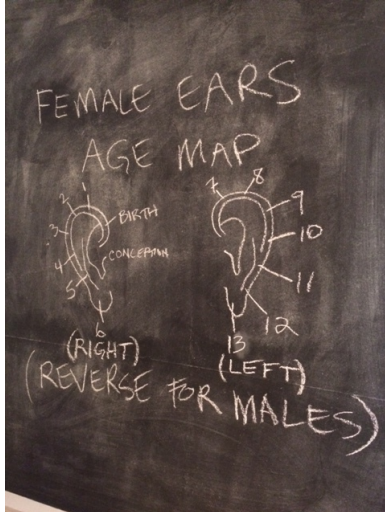 FEMALE EARS
AGE MAP
1
2
3
4
5
6
BIRTH
CONCEPTION
(RIGHT)
7
8
9
10
11
12
13
(LEFT)
(REVERSE FOR MALES)